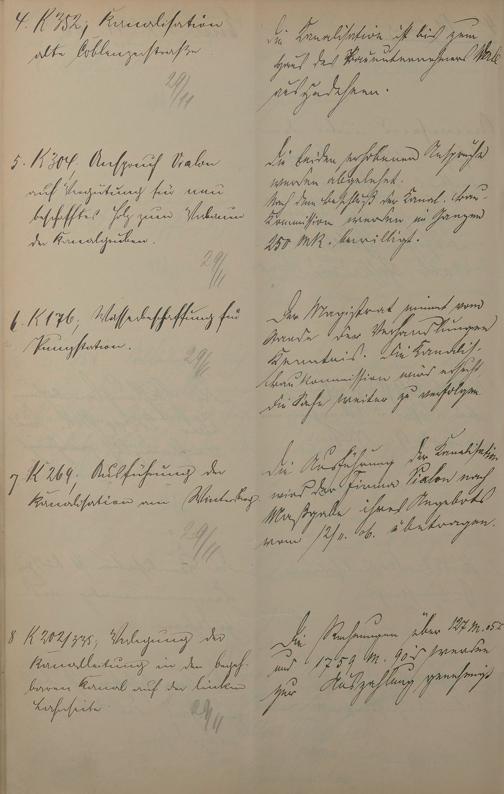 4. K 352, Kanalisation
alte Coblenzerstraße
29/11
Die Kanalisation ist bis zum
Haus des Bauunternehmers
auszudehnen.
5. K 304. Anspruch Vialon
auf Vergütung für neu
beschafftes Holz zum Verbauen
der Kanalgruben.
29/11
Die beiden erhobenen Ansprüche
werden abgelehnt.
Nach dem Beschluß der Canal. Bau-
Commission werden im Ganzen
250 Mk. bewilligt.
6. K 176, Wasserbeschaffung für
Pumpstation.
29/11
Der Magistrat nimmt vom
Stande der Verhandlungen
Kenntnis. Die Kanalis-
baukommission wird ersucht
die Sache weiter zu verfolgen
7 K 269. Ausführung der
Kanalisation am Winterberg
29/11
Die Ausführung der Kanalisation
wird der Firma Vialon nach
Maßgabe ihres Angebots
vom 12/11. 06. übertragen.
8 K 202/335, Verlegung der
Kanalleitung in den begeh-
baren Kanal auf der linken
Lahnseite
29/11
Die Rechnungen über 127 M. 05
und 1759 M. 90 werden
zur Auszahlung genehmigt